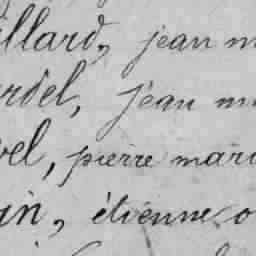 illard, jean m
rdel, jean m
vel, pierre mari
in, étienne